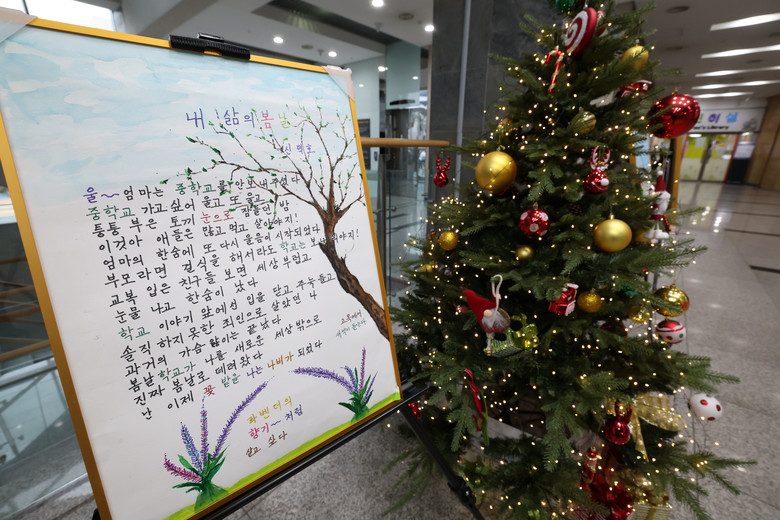 내 삶의 봄날
울~ 엄마는 중학교를 안 보내주었다
중학교 가고싶어 울고 또 울고
퉁퉁 부은 토끼 눈으로 잠들던 밤
이것아 애들은 많고 먹고 살아야지!
엄마의 한숨에 또 다시 울음이 시작되었다
부모라면 자식을 학교는 보내줘야지!
교복 입은 친구들 보면 세상 부럽고
눈물 나고 한숨이 났다
학교 이야기 앞에선 입을 닫고 주눅 들고
솔직 하지 못한 죄인으로 살았던 나
과거의 가슴앓이는 끝났다
봄날학교가 나를 새로운 세상 밖으로
진짜 봄날로 데려왔다
난 이제 꽃 밭을 나는 나비가 되었다
라벤더의
향기~ 처럼
살고 싶다
's Library